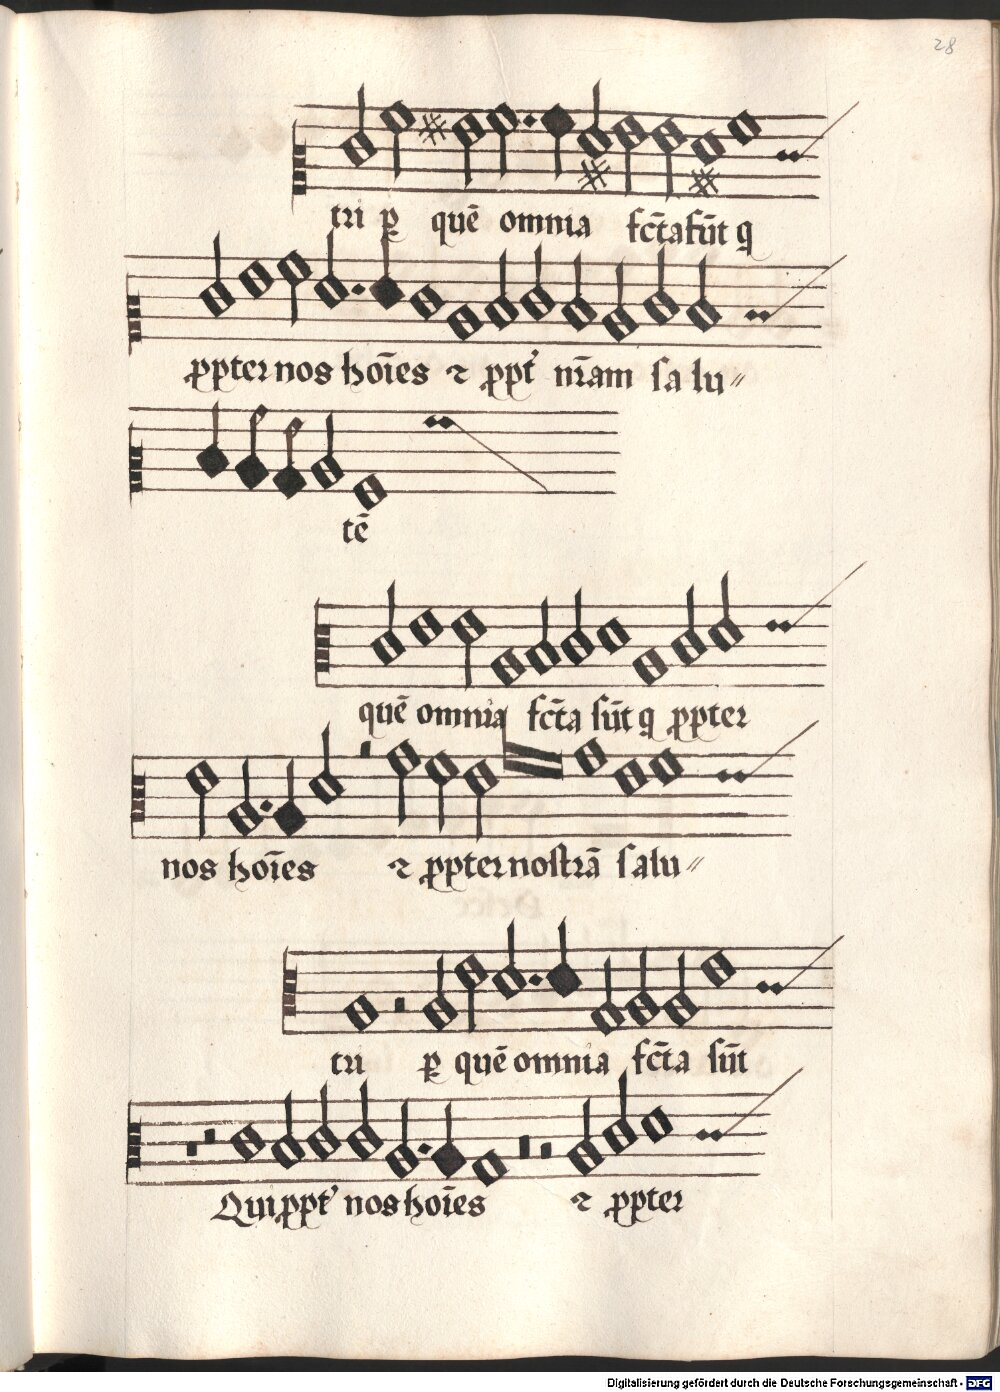 28
tri ꝑ quē omnia fc̄ta sūt q̄
ꝓpter nos hoīes ⁊ ꝓpt' nr̄am salu〃
tē
quē omnia fc̄ta sūt q̄ ꝓpter
nos hoīes ⁊ ꝓpter nostrā salu〃
tri ꝑ quē omnia fc̄ta sūt
Qui ꝓpt' nos hoīes ⁊ ꝓpter
Digitalisierung gefördert durch die Deutsche Forschungsgemeinschaft - DFG